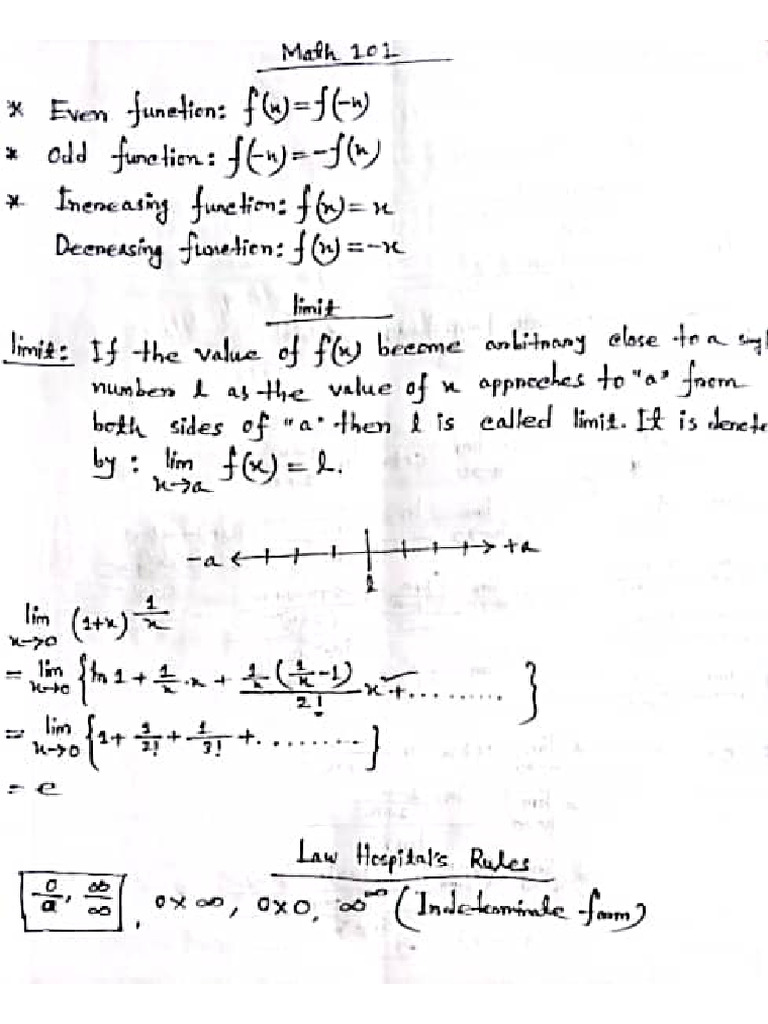 Math 101
* Even function: f(x)=f(-x)
* Odd function: f(-x)=-f(x)
* Increasing function: f(x)=x
Decreasing function: f(x)=-x
limit
limit: If the value of f(x) become arbitrary close to a singl
number l as the value of x approches to "a" from
both sides of "a" then l is called limit. It is denote
by: lim x→a f(x) = l.
-a +a
l
lim x→0 (1+x)^1/x
= lim x→0 {ln 1 + 1/x · x + 1/x(1/x -1)/2! x² + .......... }
= lim x→0 {1 + 1/2! + 1/3! + .......... }
= e
Law Hospital's Rules
0/a, ∞/∞, 0×∞, 0×0, ∞^∞ (Indeterminate form)